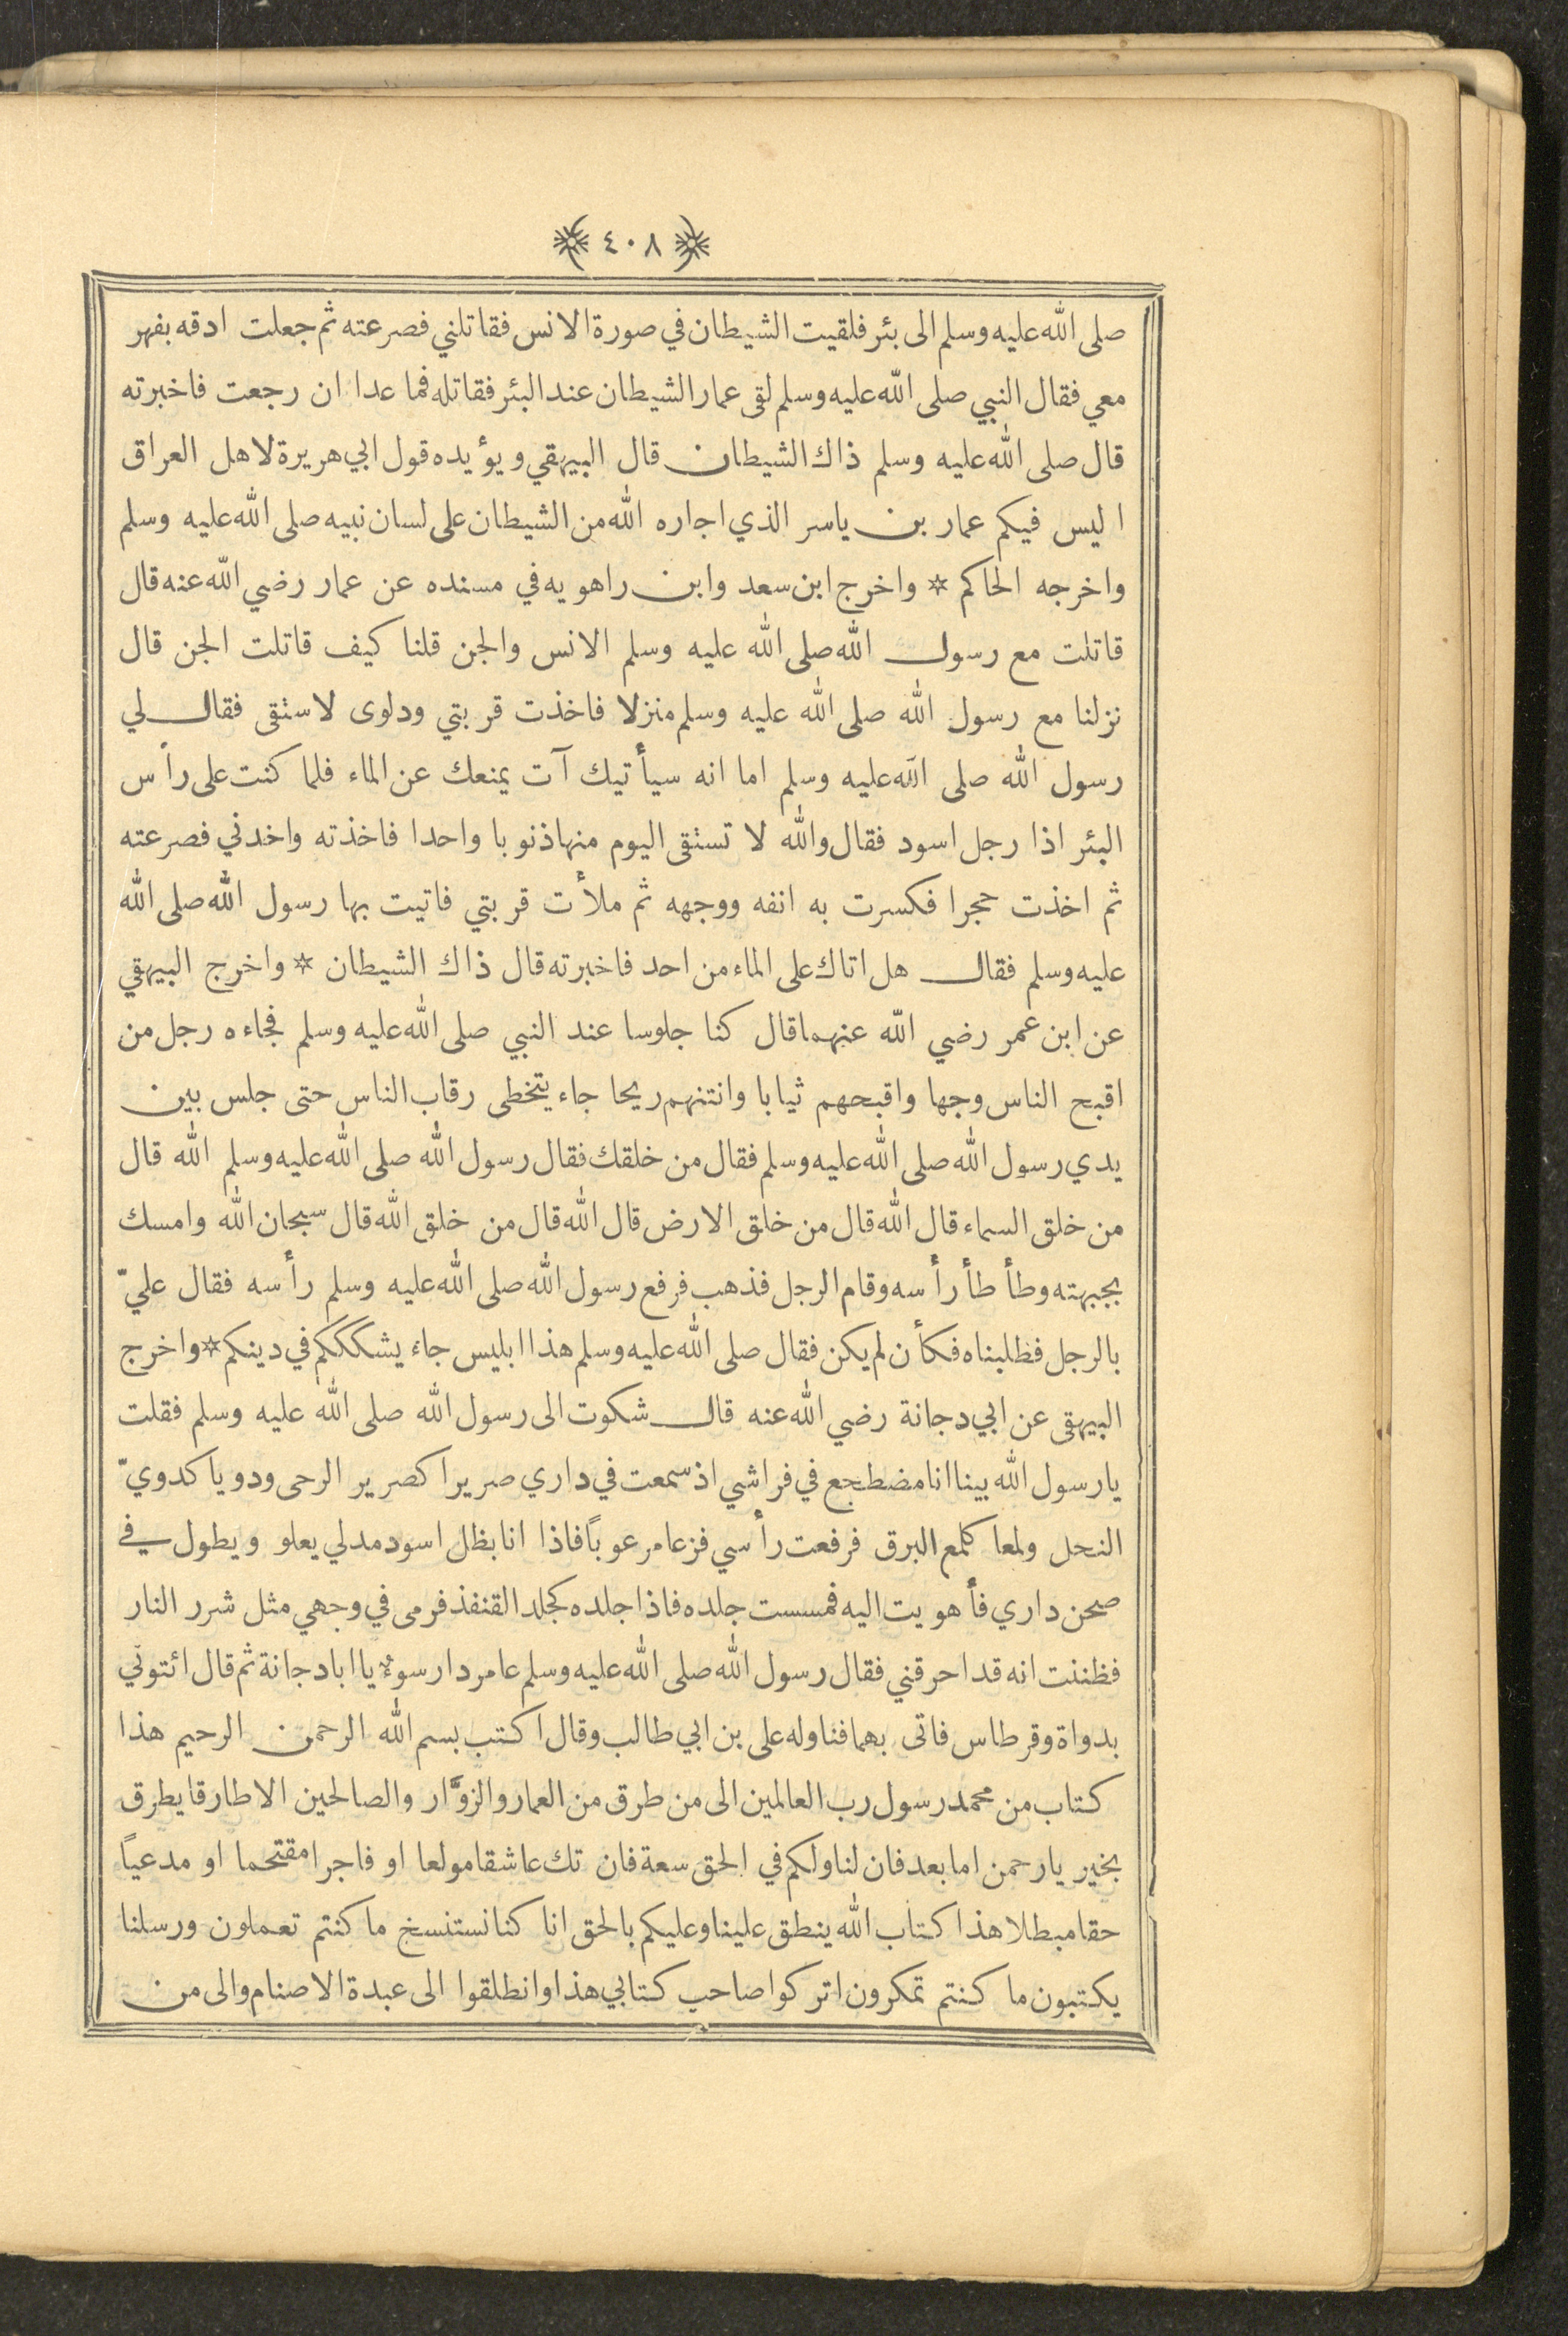 ٤٠٨
صلى الله عليه وسلم الى بئر فلقيت الشيطان في صورة الانس فقاتلني فصرعته ثم جعلت ادقه بفهر
معي فقال النبي صلى الله عليه وسلم لقى عمار الشيطان عند البئر فقاتله فما عدا ان رجعت فاخبرته
قال صلى الله عليه وسلم ذاك الشيطان قال البيهقي ويؤيده قول ابي هريرة لاهل العراق
اليس فيكم عمار بن ياسر الذي اجاره الله من الشيطان على لسان نبيه صلى الله عليه وسلم
واخرجه الحاكم * واخرج ابن سعد وابن راهويه في مسنده عن عمار رضي الله عنه قال
قاتلت مع رسول الله صلى الله عليه وسلم الانس والجن قلنا كيف قاتلت الجن قال
نزلنا مع رسول الله صلى الله عليه وسلم منزلا فاخذت قربتي ودلوى لاستقى فقال لي
رسول الله صلى الله عليه وسلم اما انه سيأتيك آت يمنعك عن الماء فلما كنت على رأس
البئر اذا رجل اسود فقال والله لا تستقى اليوم منها ذنوبا واحدا فاخذته واخدني فصرعته
ثم اخذت حجرا فكسرت به انفه ووجهه ثم ملأت قربتي فاتيت بها رسول الله صلى الله
عليه وسلم فقال هل اتاك على الماء من احد فاخبرته قال ذاك الشيطان * واخرج البيهقي
عن ابن عمر رضي الله عنهما قال كنا جلوسا عند النبي صلى الله عليه وسلم فجاءه رجل من
اقبح الناس وجها واقبحهم ثيابا وانتنهم ريحا جاء يتخطى رقاب الناس حتى جلس بين
يدي رسول الله صلى الله عليه وسلم فقال من خلقك فقال رسول الله صلى الله عليه وسلم الله قال
من خلق السماء قال الله قال من خلق الارض قال الله قال من خلق الله قال سبحان الله وامسك
بجبهته وطأطأ رأسه وقام الرجل فذهب فرفع رسول الله صلى الله عليه وسلم رأسه فقال عليّ
بالرجل فطلبناه فكأن لم يكن فقال صلى الله عليه وسلم هذا ابليس جاء يشكككم في دينكم * واخرج
البيهقى عن ابي دجانة رضي الله عنه قال شكوت الى رسول الله صلى الله عليه وسلم فقلت
يارسول الله بينا انا مضطجع في فراشي اذ سمعت في داري صريرا كصرير الرحى ودويا كدويّ
النحل ولمعا كلمع البرق فرفعت رأسي فزعا مرعوباً فاذا انا بظل اسود مدلي يعلو ويطول في
صحن داري فأهويت اليه فمسست جلده فاذا جلده كجلد القنفذ فرمى في وجهي مثل شرر النار
فظننت انه قد احرقني فقال رسول الله صلى الله عليه وسلم عامر دار سوءٌ يا ابا دجانة ثم قال ائتوني
بدواة وقرطاس فاتى بهما فناوله على بن ابي طالب وقال اكتب بسم الله الرحمن الرحيم هذا
كتاب من محمد رسول رب العالمين الى من طرق من العمار والزوَّار والصالحين الا طارقا يطرق
بخير يارحمن اما بعد فان لنا ولكم في الحق سعة فان تك عاشقا مولعا او فاجرا مقتحما او مدعياً
حقا مبطلا هذا كتاب الله ينطق علينا وعليكم بالحق انا كنا نستنسخ ما كنتم تعملون ورسلنا
يكتبون ما كنتم تمكرون اتركوا صاحب كتابي هذا وانطلقوا الى عبدة الاصنام والى من